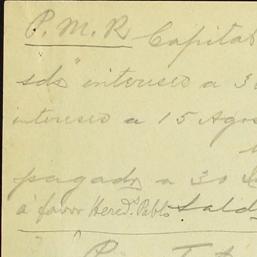 P. M. R Capital
sds" intereses a 30
intereses a 15 Agos
pagado a 30
a favor Hered.s Pablo Sald